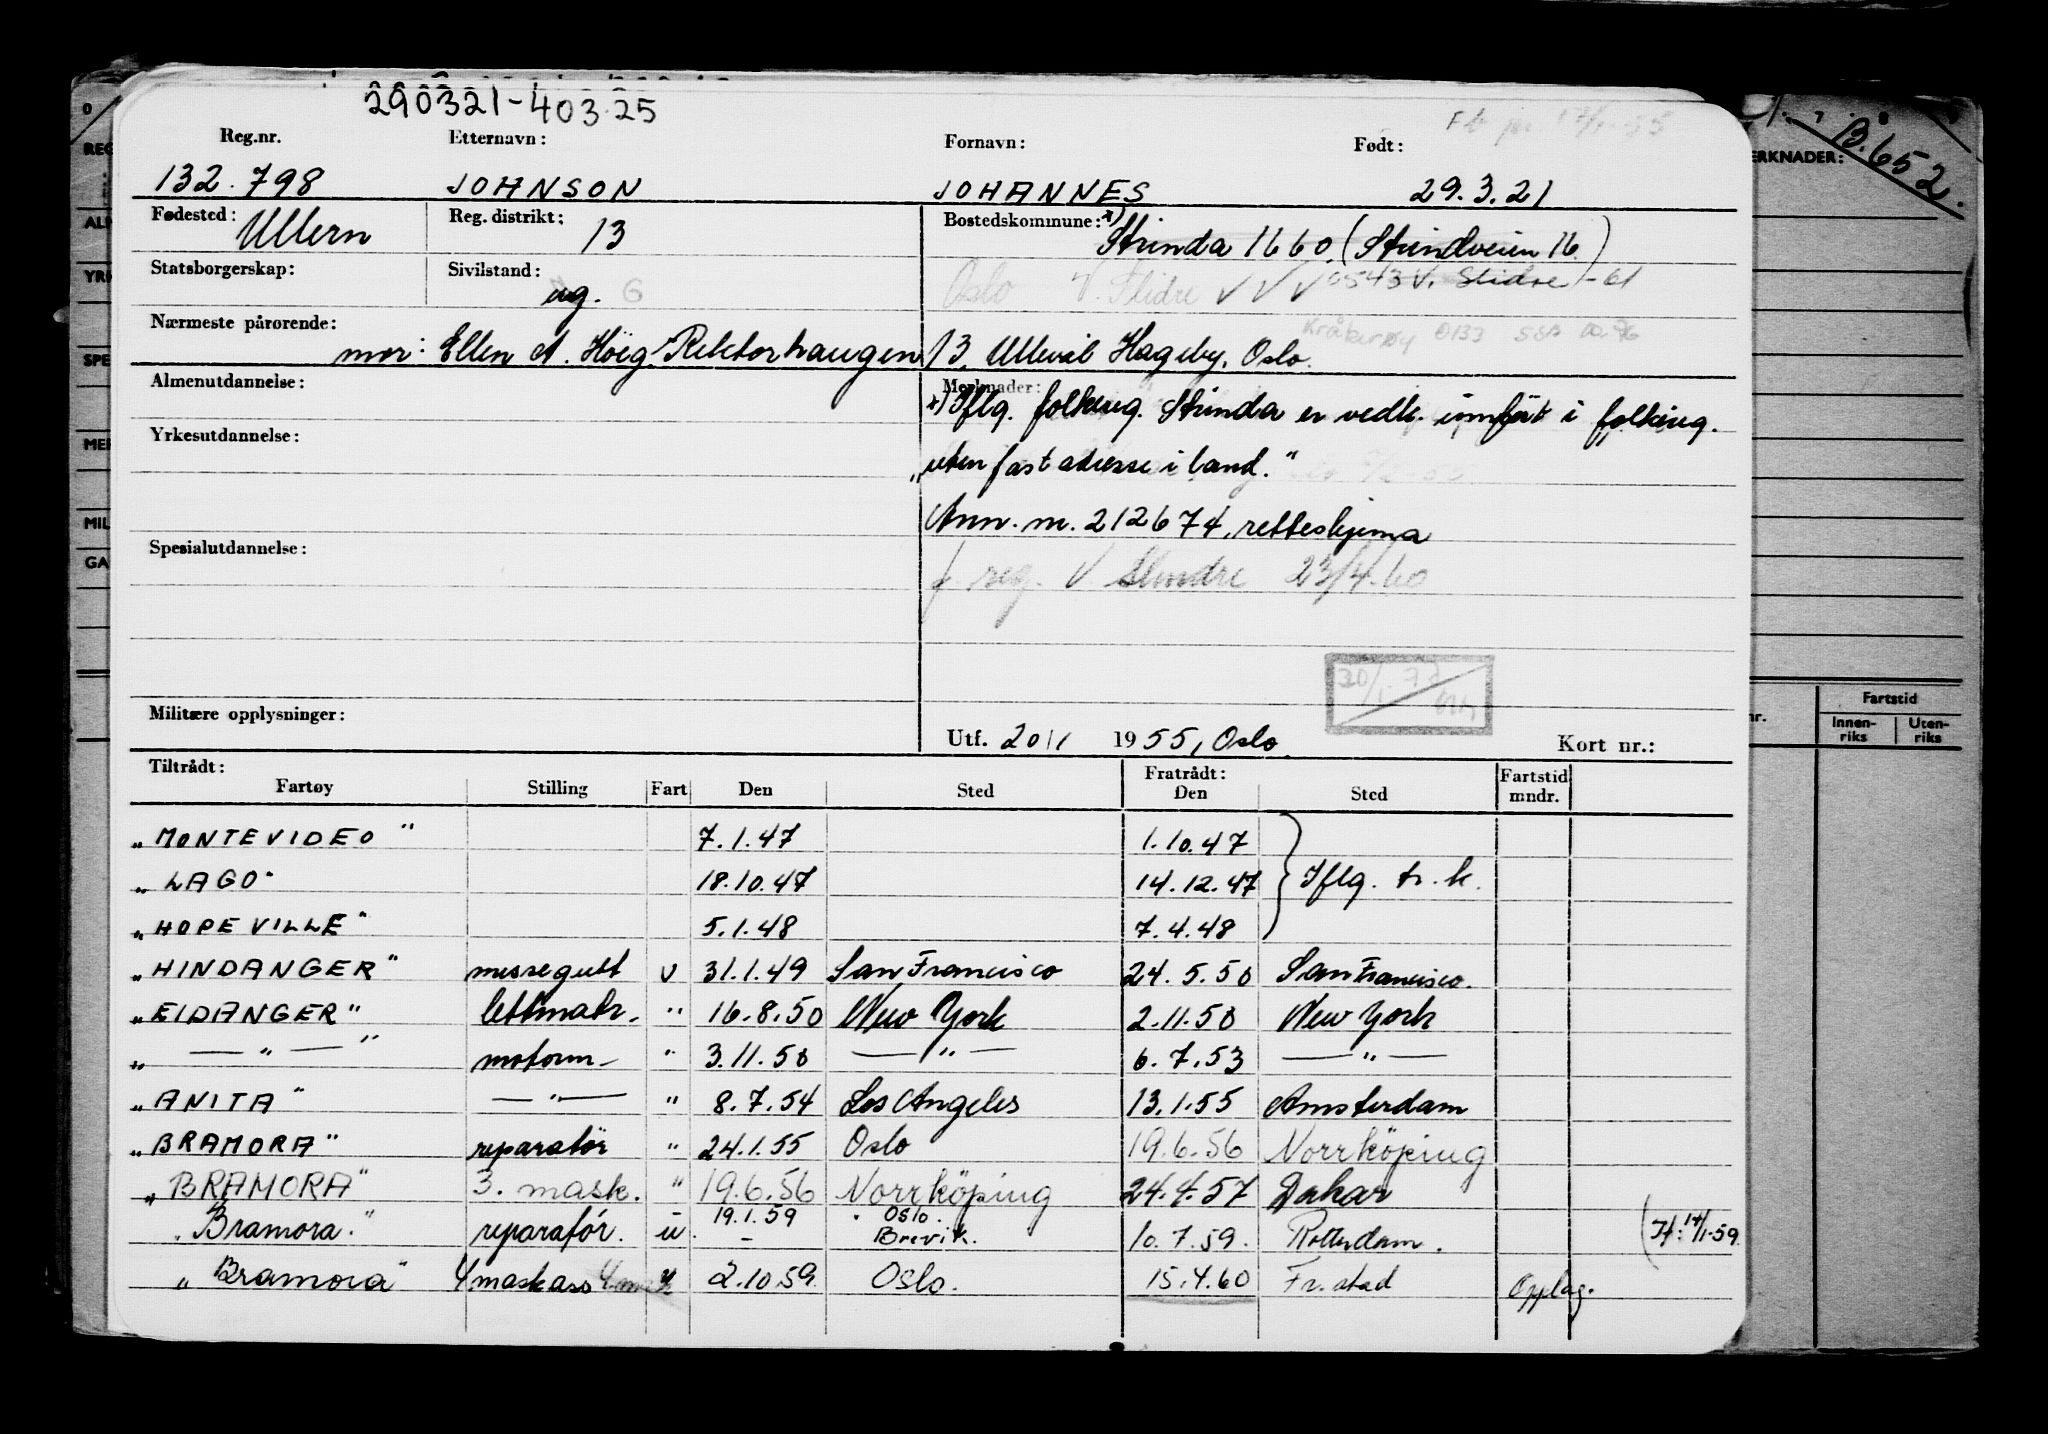 290321-40325
Reg.nr. Etternavn: Fornavn: Født:
132.798 JOHNSON JOHANNES 29.3.21
B.652.
REG
ERKNADER:
Fødested: Ullern Reg. distrikt: 13 Bostedskommune: x) Strinda 1660. (Strindveien 16)
Statsborgerskap: Sivilstand: ug. G Oslo V. Slidre V V V 0543 V. Slidre -61
Nærmeste pårørende: Kråkerøy 0133
mor: Ellen A. Höeg. Rektorhaugen 13, Ullevål Hageby, Oslo.
Almenutdannelse: Merknader:
x) Iflg. folkereg. Strinda er vedk. innført i folkereg.
Yrkesutdannelse:
"uten fast adresse i land."
Ann. m. 212674, retteskjema
Spesialutdannelse:
f. reg. V. Slindre 23/4.60
Militære opplysninger:
Utf. 20/1 1955, Oslo. Kort nr.:
Fartstid
Innen-riks Uten-riks
Tiltrådt: Fratrådt: Fartstid
Fartøy Stilling Fart Den Sted Den Sted mndr.
"MONTEVIDEO" 7.1.47 1.10.47
"LAGO" 18.10.47 14.12.47 Iflg. tr.k.
"HOPEVILLE" 5.1.48 7.4.48
"HINDANGER" messegutt v 31.1.49 San Francisco 24.5.50 San Francisco.
"EIDANGER" lettmatr. " 16.8.50 New York 2.11.50 New York
" — " — " motorm — " 3.11.50 — " — 6.7.53 — " —
"ANITA" — " — " 8.7.54 Los Angeles 13.1.55 Amsterdam
"BRAMORA" reparatör " 24.1.55 Oslo 19.6.56 Norrköping
"BRAMORA" 3. mask. " 19.6.56 Norrköping 24.4.57 Dakar
19.1.59 " Oslo.
"Bramora." reparatór. u. - Brevik. 10.7.59. Rotterdam.
"Bramora" 4 maskass 2.10.59. Oslo. 15.4.60 Fr.stad Opplag.